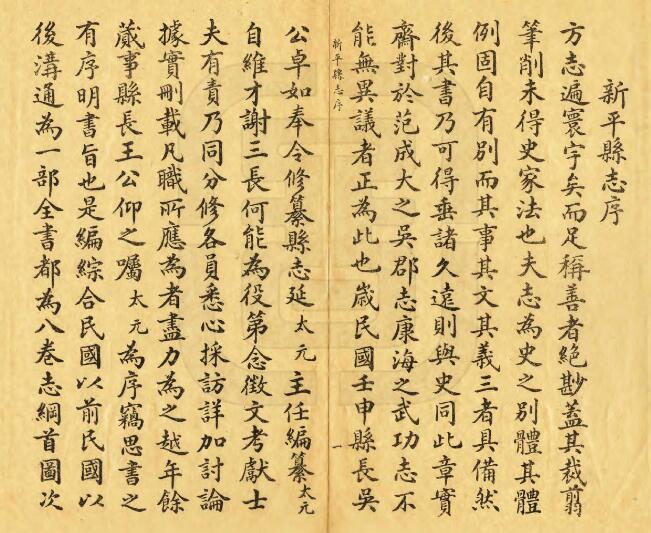 新平縣志序
方志遍寰宇矣而足稱善者絕尠蓋其裁翦
筆削未得史家法也夫志為史之別體其體
例固自有別而其事其文其義三者具備然
後其書乃可得垂諸久遠則與史同此章實
齋對於范成大之吳郡志康海之武功志不
能無異議者正為此也嵗民國壬申縣長吳
新平縣志序
一
公卓如奉令修纂縣志延太元主任編纂太元
自維才謝三長何能為役第念徵文考獻士
夫有責乃同分修各員悉心採訪詳加討論
據實刪載凡職所應為者盡力為之越年餘
蕆事縣長王公仰之囑太元為序竊思書之
有序明書旨也是編綜合民國以前民國以
後溝通為一部全書都為八卷志綱首圖次